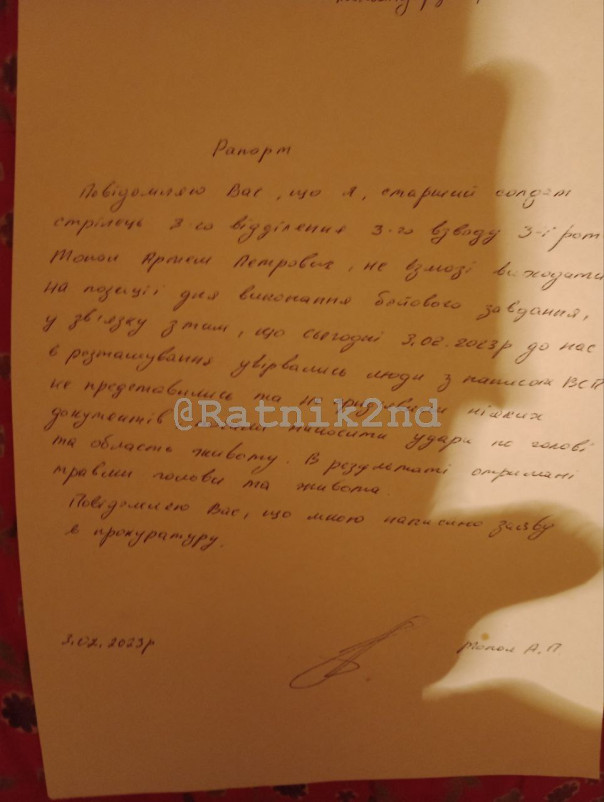 Рапорт
Повідомляю Вас, що я, старший солдат
стрілець 3-го відділення 3-го взводу 3-ї рот
Мопол Артем Петрович, не взмозі виходити
на позиції для виконання бойового завдання,
у зв'язку з тим, що сьогодні 3.02.2023р до нас
в розташування увірвались люди з написом ВСП
не представились та не ніяких
документів наносити удари по голові
та область животу. В результаті отримані
травми голови та живота.
Повідомляю Вас, що мною написано заяву
в прокуратуру.
3.02.2023р
Мопол А.П
@Ratnik2nd